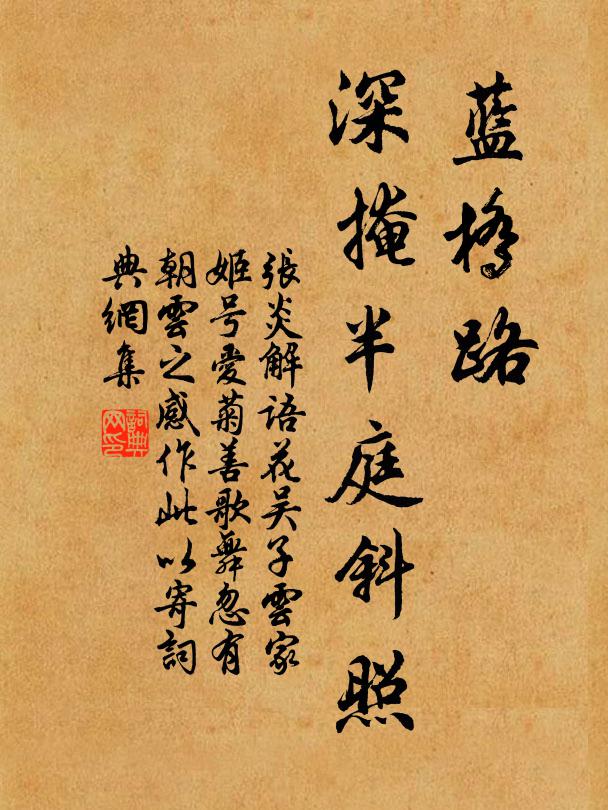 藍橋路
深掩半庭斜照
張炎解語花吴子雲家
姬号愛菊善歌舞忽有
朝雲之感作此以寄詞
典網集
詞典
网印